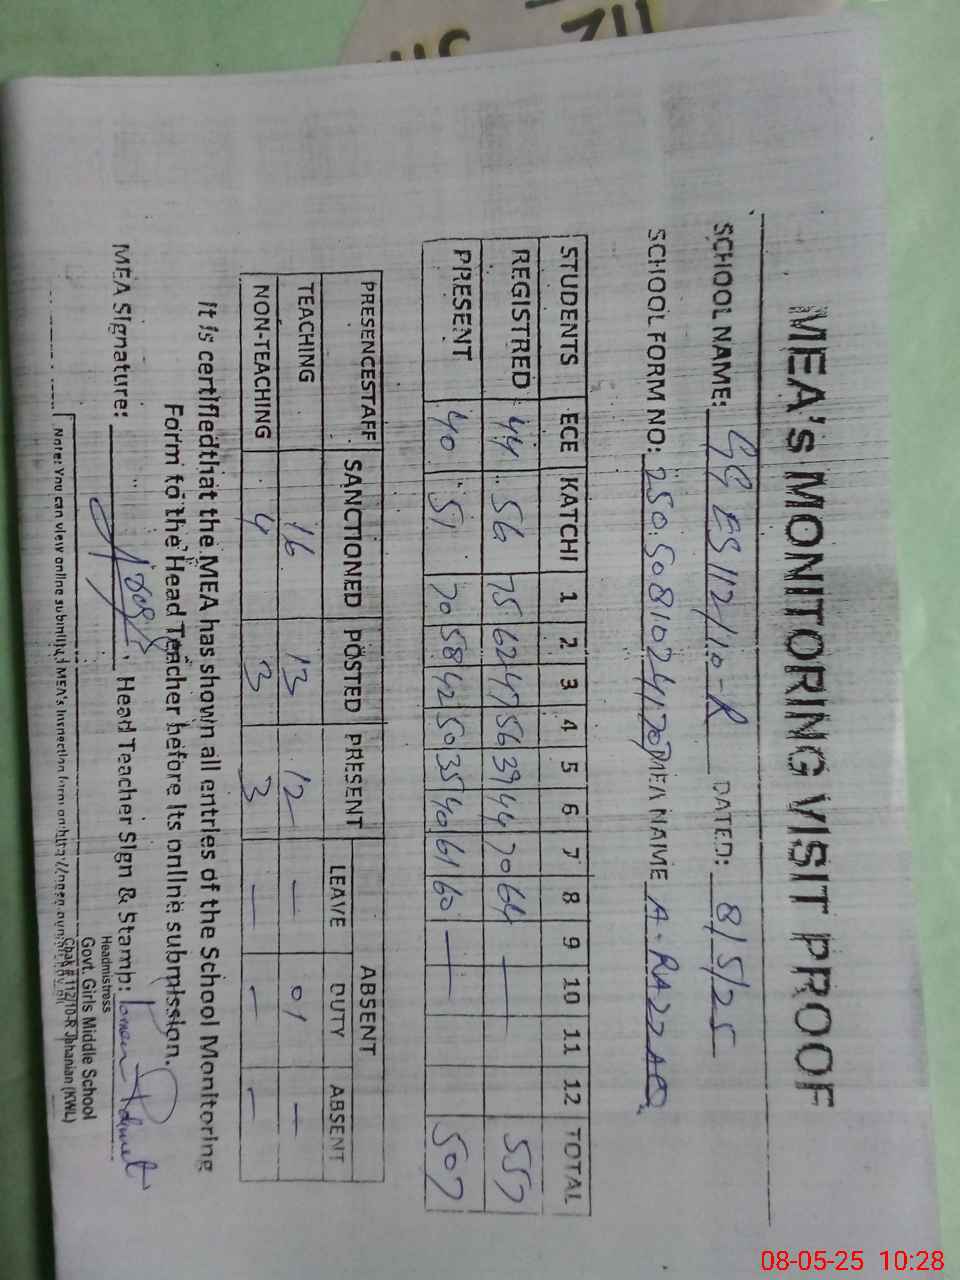 MEA's MONITORING VISIT PROOF
SCHOOL NAME: GGES 112/10-R DATED: 8/5/25
SCHOOL FORM NO: MEA NAME A. RAZZAQ
STUDENTS ECE KATCHI 1 2 3 4 5 6 7 8 9 10 11 12 TOTAL
REGISTRED 44 56 75 62 47 56 39 44 70 64 — 557
PRESENT 40 51 70 58 42 50 35 40 61 60 — 507
PRESENCESTAFF SANCTIONED POSTED PRESENT ABSENT
LEAVE DUTY ABSENT
TEACHING 16 13 12 — 01 —
NON-TEACHING 4 3 3 — — —
It is certifiedthat the MEA has shown all entries of the School Monitoring
Form to the Head Teacher before its online submission.
MEA Signature: Head Teacher Sign & Stamp:
Headmistress
Govt. Girls Middle School
Chak # 112/10-R Jahanian (KWL)
Note: You can view online submitted MEA's Inspection form on
08-05-25 10:28